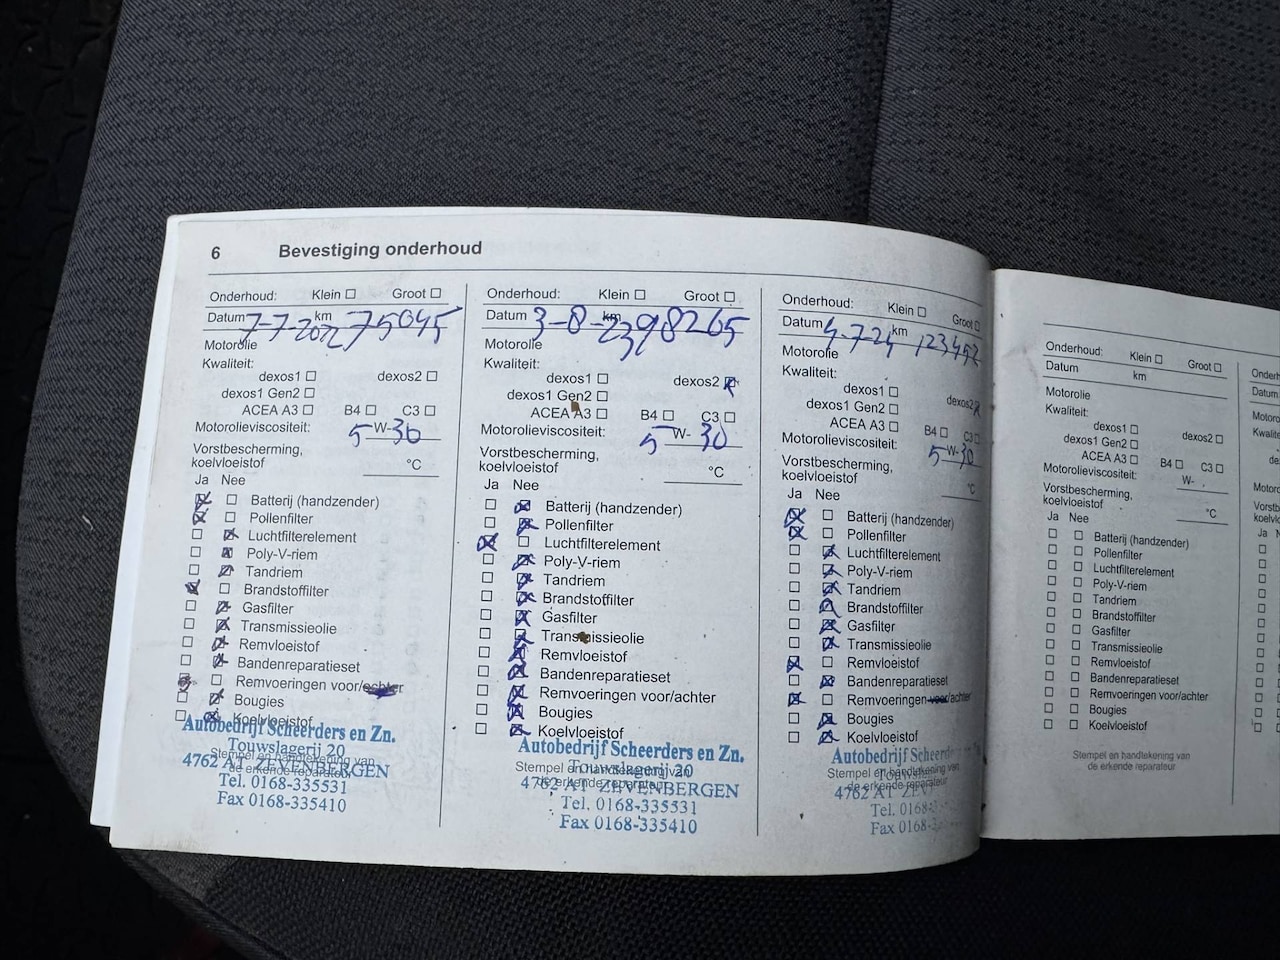 6 Bevestiging onderhoud
Onderhoud: Klein Groot
Datum 7-7-2022 km 75045
Motorolie
Kwaliteit:
dexos1 dexos2
dexos1 Gen2
ACEA A3 B4 C3
Motorolieviscositeit: 5 W- 30
Vorstbescherming,
koelvloeistof °C
Ja Nee
Batterij (handzender)
Pollenfilter
Luchtfilterelement
Poly-V-riem
Tandriem
Brandstoffilter
Gasfilter
Transmissieolie
Remvloeistof
Bandenreparatieset
Remvoeringen voor/achter
Bougies
Koelvloeistof
Autobedrijf Scheerders en Zn.
Touwslagerij 20
Stempel en handtekening van
4762 AT ZEVENBERGEN
de erkende reparateur
Tel. 0168-335531
Fax 0168-335410
Onderhoud: Klein Groot
Datum 3-8-23 km 98265
Motorolie
Kwaliteit:
dexos1 dexos2
dexos1 Gen2
ACEA A3 B4 C3
Motorolieviscositeit: 5 W- 30
Vorstbescherming,
koelvloeistof °C
Ja Nee
Batterij (handzender)
Pollenfilter
Luchtfilterelement
Poly-V-riem
Tandriem
Brandstoffilter
Gasfilter
Transmissieolie
Remvloeistof
Bandenreparatieset
Remvoeringen voor/achter
Bougies
Koelvloeistof
Autobedrijf Scheerders en Zn.
Touwslagerij 20
Stempel en handtekening van
4762 AT ZEVENBERGEN
de erkende reparateur
Tel. 0168-335531
Fax 0168-335410
Onderhoud: Klein Groot
Datum 4-7-24 km
Motorolie
Kwaliteit:
dexos1 dexos2
dexos1 Gen2
ACEA A3 B4 C3
Motorolieviscositeit: 5 W- 30
Vorstbescherming,
koelvloeistof °C
Ja Nee
Batterij (handzender)
Pollenfilter
Luchtfilterelement
Poly-V-riem
Tandriem
Brandstoffilter
Gasfilter
Transmissieolie
Remvloeistof
Bandenreparatieset
Remvoeringen voor/achter
Bougies
Koelvloeistof
Autobedrijf
Stempel en handtekening van
4762 AT
de erkende reparateur
Tel. 0168-
Fax 0168-
Onderhoud: Klein Groot
Datum km
Motorolie
Kwaliteit:
dexos1 dexos2
dexos1 Gen2
ACEA A3 B4 C3
Motorolieviscositeit: W-
Vorstbescherming,
koelvloeistof °C
Ja Nee
Batterij (handzender)
Pollenfilter
Luchtfilterelement
Poly-V-riem
Tandriem
Brandstoffilter
Gasfilter
Transmissieolie
Remvloeistof
Bandenreparatieset
Remvoeringen voor/achter
Bougies
Koelvloeistof
Stempel en handtekening van
de erkende reparateur
Ja